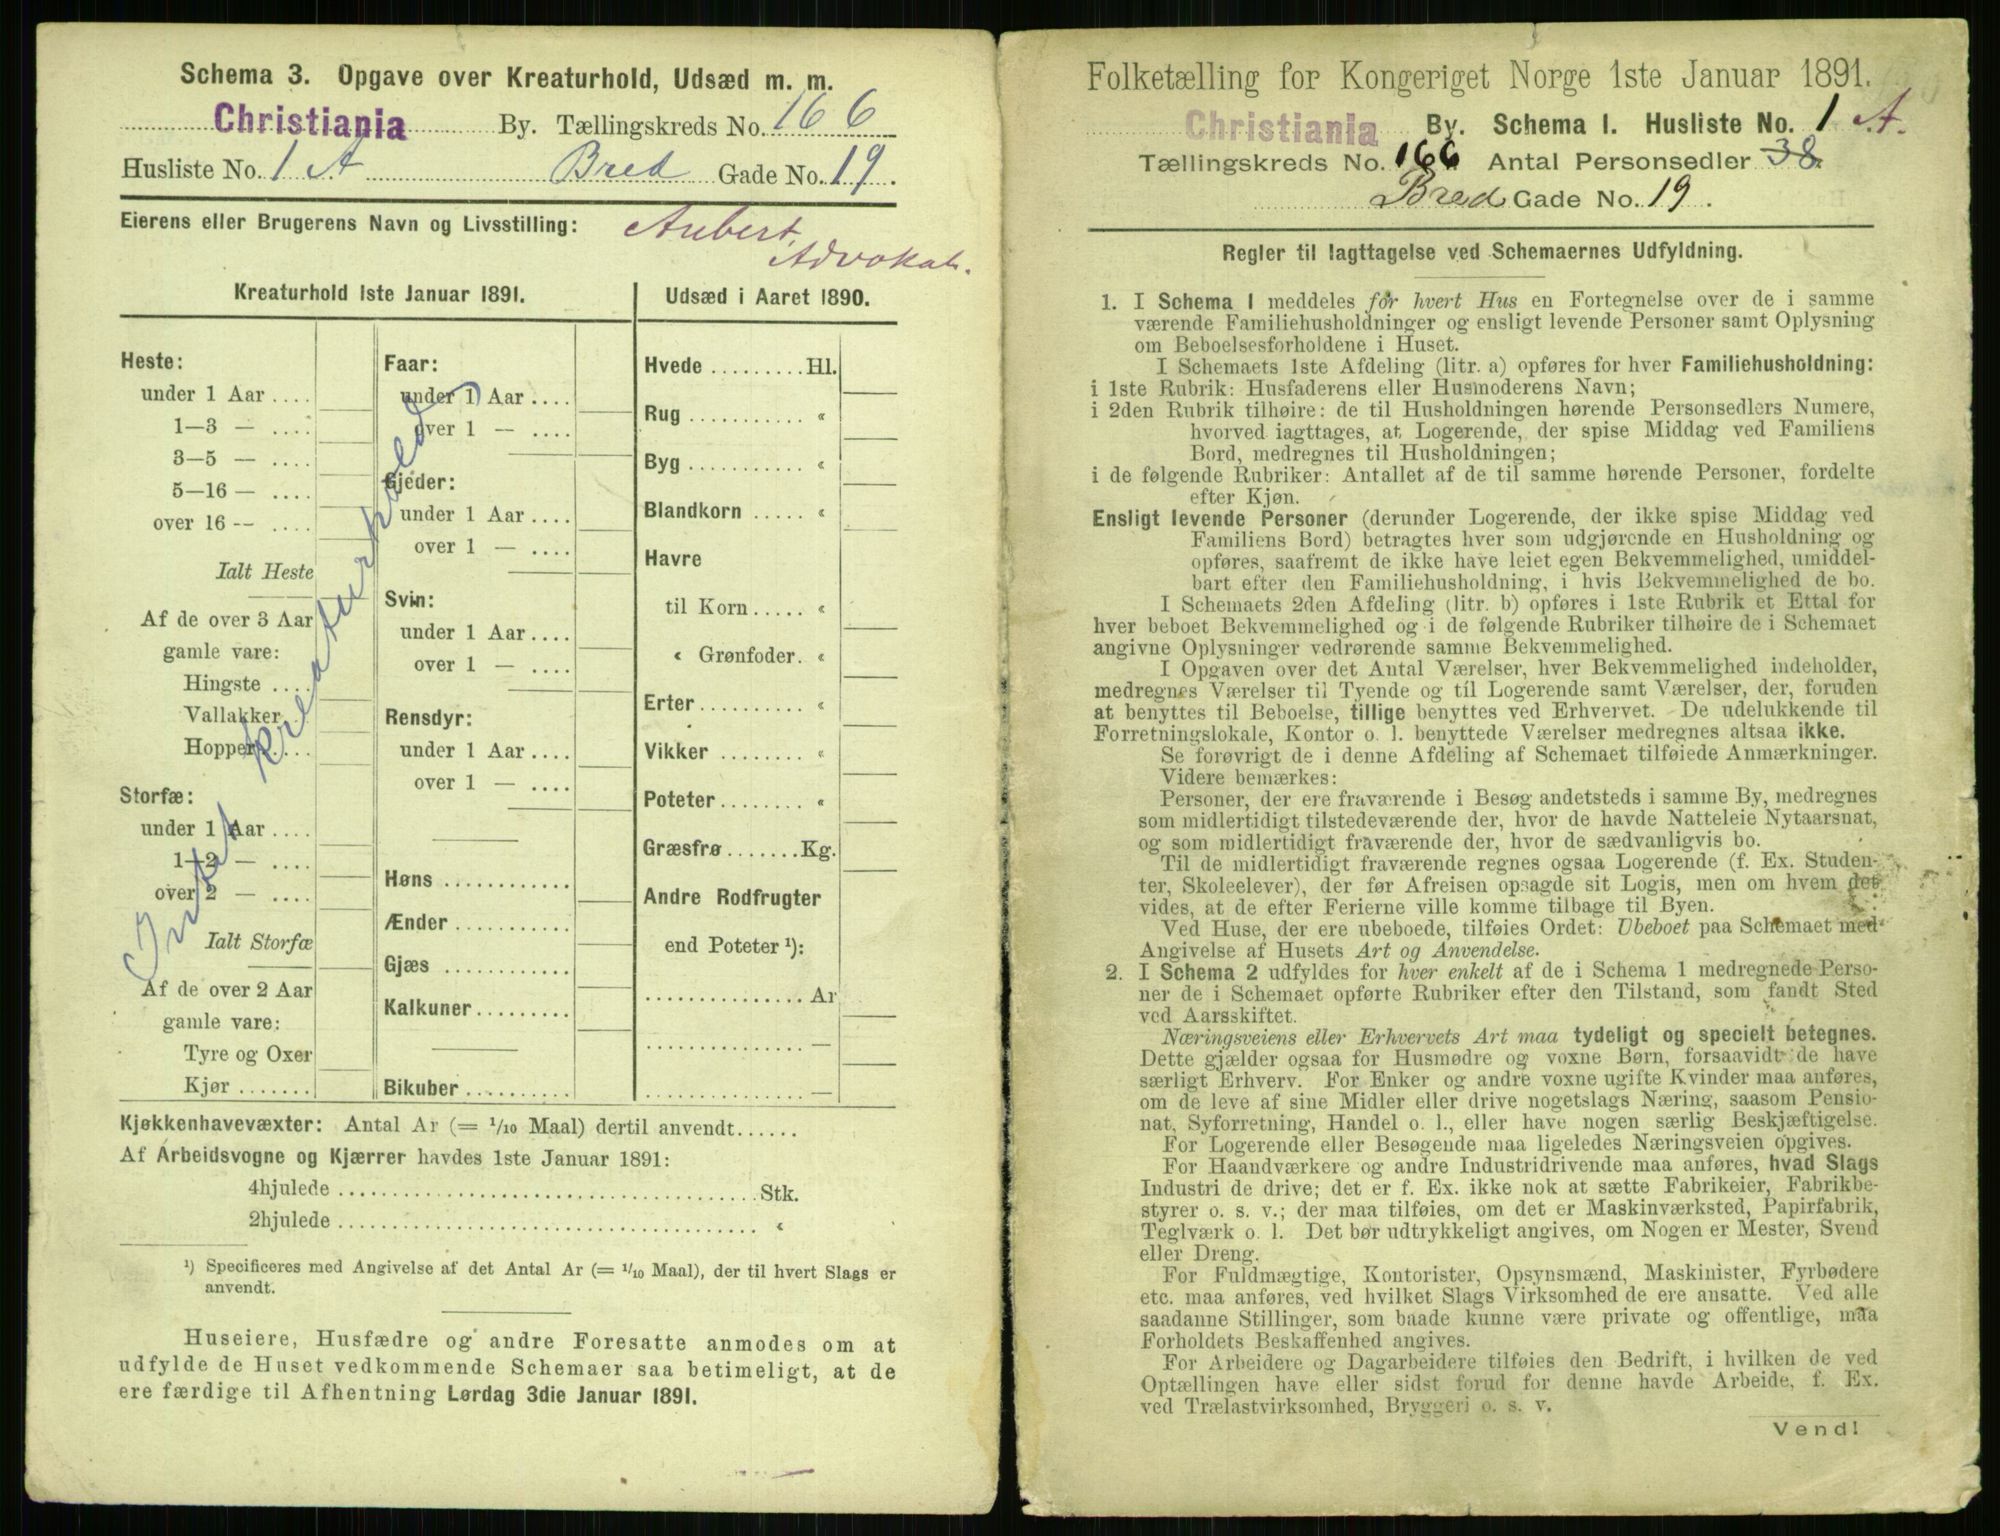 Schema 3. Opgave over Kreaturhold, Udsæd m. m.
Christiania By. Tællingskreds No. 166
Husliste No. 1 A Bred Gade No. 19.
Eierens eller Brugerens Navn og Livsstilling: Aubert,
Advokat.
Kreaturhold 1ste Januar 1891.
Heste:
under 1 Aar ....
1—3 — ....
3—5 — ....
5—16 — ....
over 16 -- ....
Ialt Heste
Af de over 3 Aar
gamle vare:
Hingste ....
Vallakker..
Hopper ....
Storfæ:
under 1 Aar ....
1—2 — ....
over 2 — ....
Ialt Storfæ
Af de over 2 Aar
gamle vare:
Tyre og Oxer
Kjør .......
Faar:
under 1 Aar ....
over 1 — ....
Gjeder:
under 1 Aar ....
over 1 — ....
Svin:
under 1 Aar ....
over 1 — ....
Rensdyr:
under 1 Aar ....
over 1 — ....
Høns ............
Ænder ...........
Gjæs ............
Kalkuner.........
Bikuber ..........
Intet kreaturhold
Udsæd i Aaret 1890.
Hvede .........Hl.
Rug ........... «
Byg ........... «
Blandkorn ..... «
Havre
til Korn ..... «
« Grønfoder. «
Erter.......... «
Vikker ........ «
Poteter........ «
Græsfrø .......Kg.
Andre Rodfrugter
end Poteter ¹):
............... Ar
............... —
............... —
Kjøkkenhavevæxter: Antal Ar (= 1/10 Maal) dertil anvendt......
Af Arbeidsvogne og Kjærrer havdes 1ste Januar 1891:
4hjulede ........................................Stk.
2hjulede ........................................ «
¹) Specificeres med Angivelse af det Antal Ar (= 1/10 Maal), der til hvert Slags er
anvendt.
Huseiere, Husfædre og andre Foresatte anmodes om at
udfylde de Huset vedkommende Schemaer saa betimeligt, at de
ere færdige til Afhentning Lørdag 3die Januar 1891.
Folketælling for Kongeriget Norge 1ste Januar 1891.
Christiania By. Schema I. Husliste No. 1 A.
Tællingskreds No. 166 Antal Personsedler 38
Bred Gade No. 19.
Regler til Iagttagelse ved Schemaernes Udfyldning.
1. I Schema I meddeles før hvert Hus en Fortegnelse over de i samme
værende Familiehusholdninger og ensligt levende Personer samt Oplysning
om Beboelsesforholdene i Huset.
I Schemaets 1ste Afdeling (litr. a) opføres for hver Familiehusholdning:
i 1ste Rubrik: Husfaderens eller Husmoderens Navn;
i 2den Rubrik tilhøire: de til Husholdningen hørende Personsedlers Numere,
hvorved iagttages, at Logerende, der spise Middag ved Familiens
Bord, medregnes til Husholdningen;
i de følgende Rubriker: Antallet af de til samme hørende Personer, fordelte
efter Kjøn.
Ensligt levende Personer (derunder Logerende, der ikke spise Middag ved
Familiens Bord) betragtes hver som udgjørende en Husholdning og
opføres, saafremt de ikke have leiet egen Bekvemmelighed, umiddel-
bart efter den Familiehusholdning, i hvis Bekvemmelighed de bo.
I Schemaets 2den Afdeling (litr. b) opføres i 1ste Rubrik et Ettal for
hver beboet Bekvemmelighed og i de følgende Rubriker tilhøire de i Schemaet
angivne Oplysninger vedrørende samme Bekvemmelighed.
I Opgaven over det Antal Værelser, hver Bekvemmelighed indeholder,
medregnes Værelser til Tyende og til Logerende samt Værelser, der, foruden
at benyttes til Beboelse, tillige benyttes ved Erhvervet. De udelukkende til
Forretningslokale, Kontor o. l. benyttede Værelser medregnes altsaa ikke.
Se forøvrigt de i denne Afdeling af Schemaet tilføiede Anmærkninger.
Videre bemærkes:
Personer, der ere fraværende i Besøg andetsteds i samme By, medregnes
som midlertidigt tilstedeværende der, hvor de havde Natteleie Nytaarsnat,
og som midlertidigt fraværende der, hvor de sædvanligvis bo.
Til de midlertidigt fraværende regnes ogsaa Logerende (f. Ex. Studen-
ter, Skoleelever), der før Afreisen opsagde sit Logis, men om hvem det
vides, at de efter Ferierne ville komme tilbage til Byen.
Ved Huse, der ere ubeboede, tilføies Ordet: Ubeboet paa Schemaet med
Angivelse af Husets Art og Anvendelse.
2. I Schema 2 udfyldes for hver enkelt af de i Schema 1 medregnede Perso-
ner de i Schemaet opførte Rubriker efter den Tilstand, som fandt Sted
ved Aarsskiftet.
Næringsveiens eller Erhvervets Art maa tydeligt og specielt betegnes.
Dette gjælder ogsaa for Husmødre og voxne Børn, forsaavidt de have
særligt Erhverv. For Enker og andre voxne ugifte Kvinder maa anføres,
om de leve af sine Midler eller drive nogetslags Næring, saasom Pensio-
nat, Syforretning, Handel o. l., eller have nogen særlig Beskjæftigelse.
For Logerende eller Besøgende maa ligeledes Næringsveien opgives.
For Haandværkere og andre Industridrivende maa anføres, hvad Slags
Industri de drive; det er f. Ex. ikke nok at sætte Fabrikeier, Fabrikbe-
styrer o. s. v.; der maa tilføies, om det er Maskinværksted, Papirfabrik,
Teglværk o. l. Det bør udtrykkeligt angives, om Nogen er Mester, Svend
eller Dreng.
For Fuldmægtige, Kontorister, Opsynsmænd, Maskinister, Fyrbødere
etc. maa anføres, ved hvilket Slags Virksomhed de ere ansatte. Ved alle
saadanne Stillinger, som baade kunne være private og offentlige, maa
Forholdets Beskaffenhed angives.
For Arbeidere og Dagarbeidere tilføies den Bedrift, i hvilken de ved
Optællingen have eller sidst forud for denne havde Arbeide, f. Ex.
ved Trælastvirksomhed, Bryggeri o. s. v.
Vend!